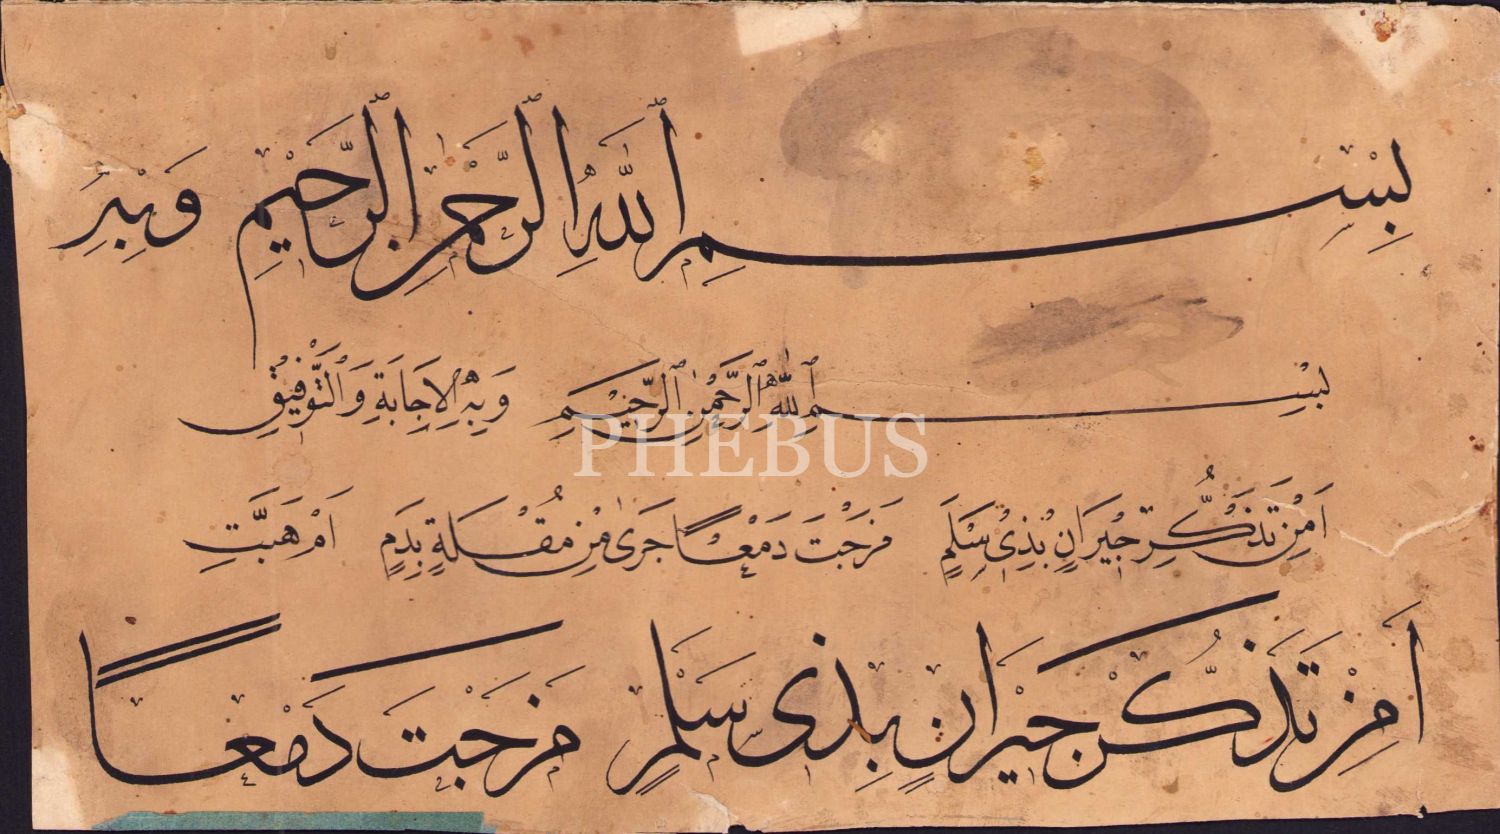 بِسْمِ ٱللَّهِ ٱلرَّحْمٰنِ ٱلرَّحِيمِ وَبِهِ
بِسْمِ ٱللَّهِ ٱلرَّحْمٰنِ ٱلرَّحِيمِ وَبِهِ الْاِجَابَةِ وَالتَّوْفِيقِ
PHEBUS
اَمِنْ تَذَكُّرِ جِيْرَانٍ بِذِيْ سَلَمٍ مَزَجْتَ دَمْعًا جَرٰى مِنْ مُقْلَةٍ بِدَمٍ اَمْ هَبَّتِ
اَمِنْ تَذَكُّرِ جِيْرَانٍ بِذِى سَلَمٍ مَزَجْتَ دَمْعًا